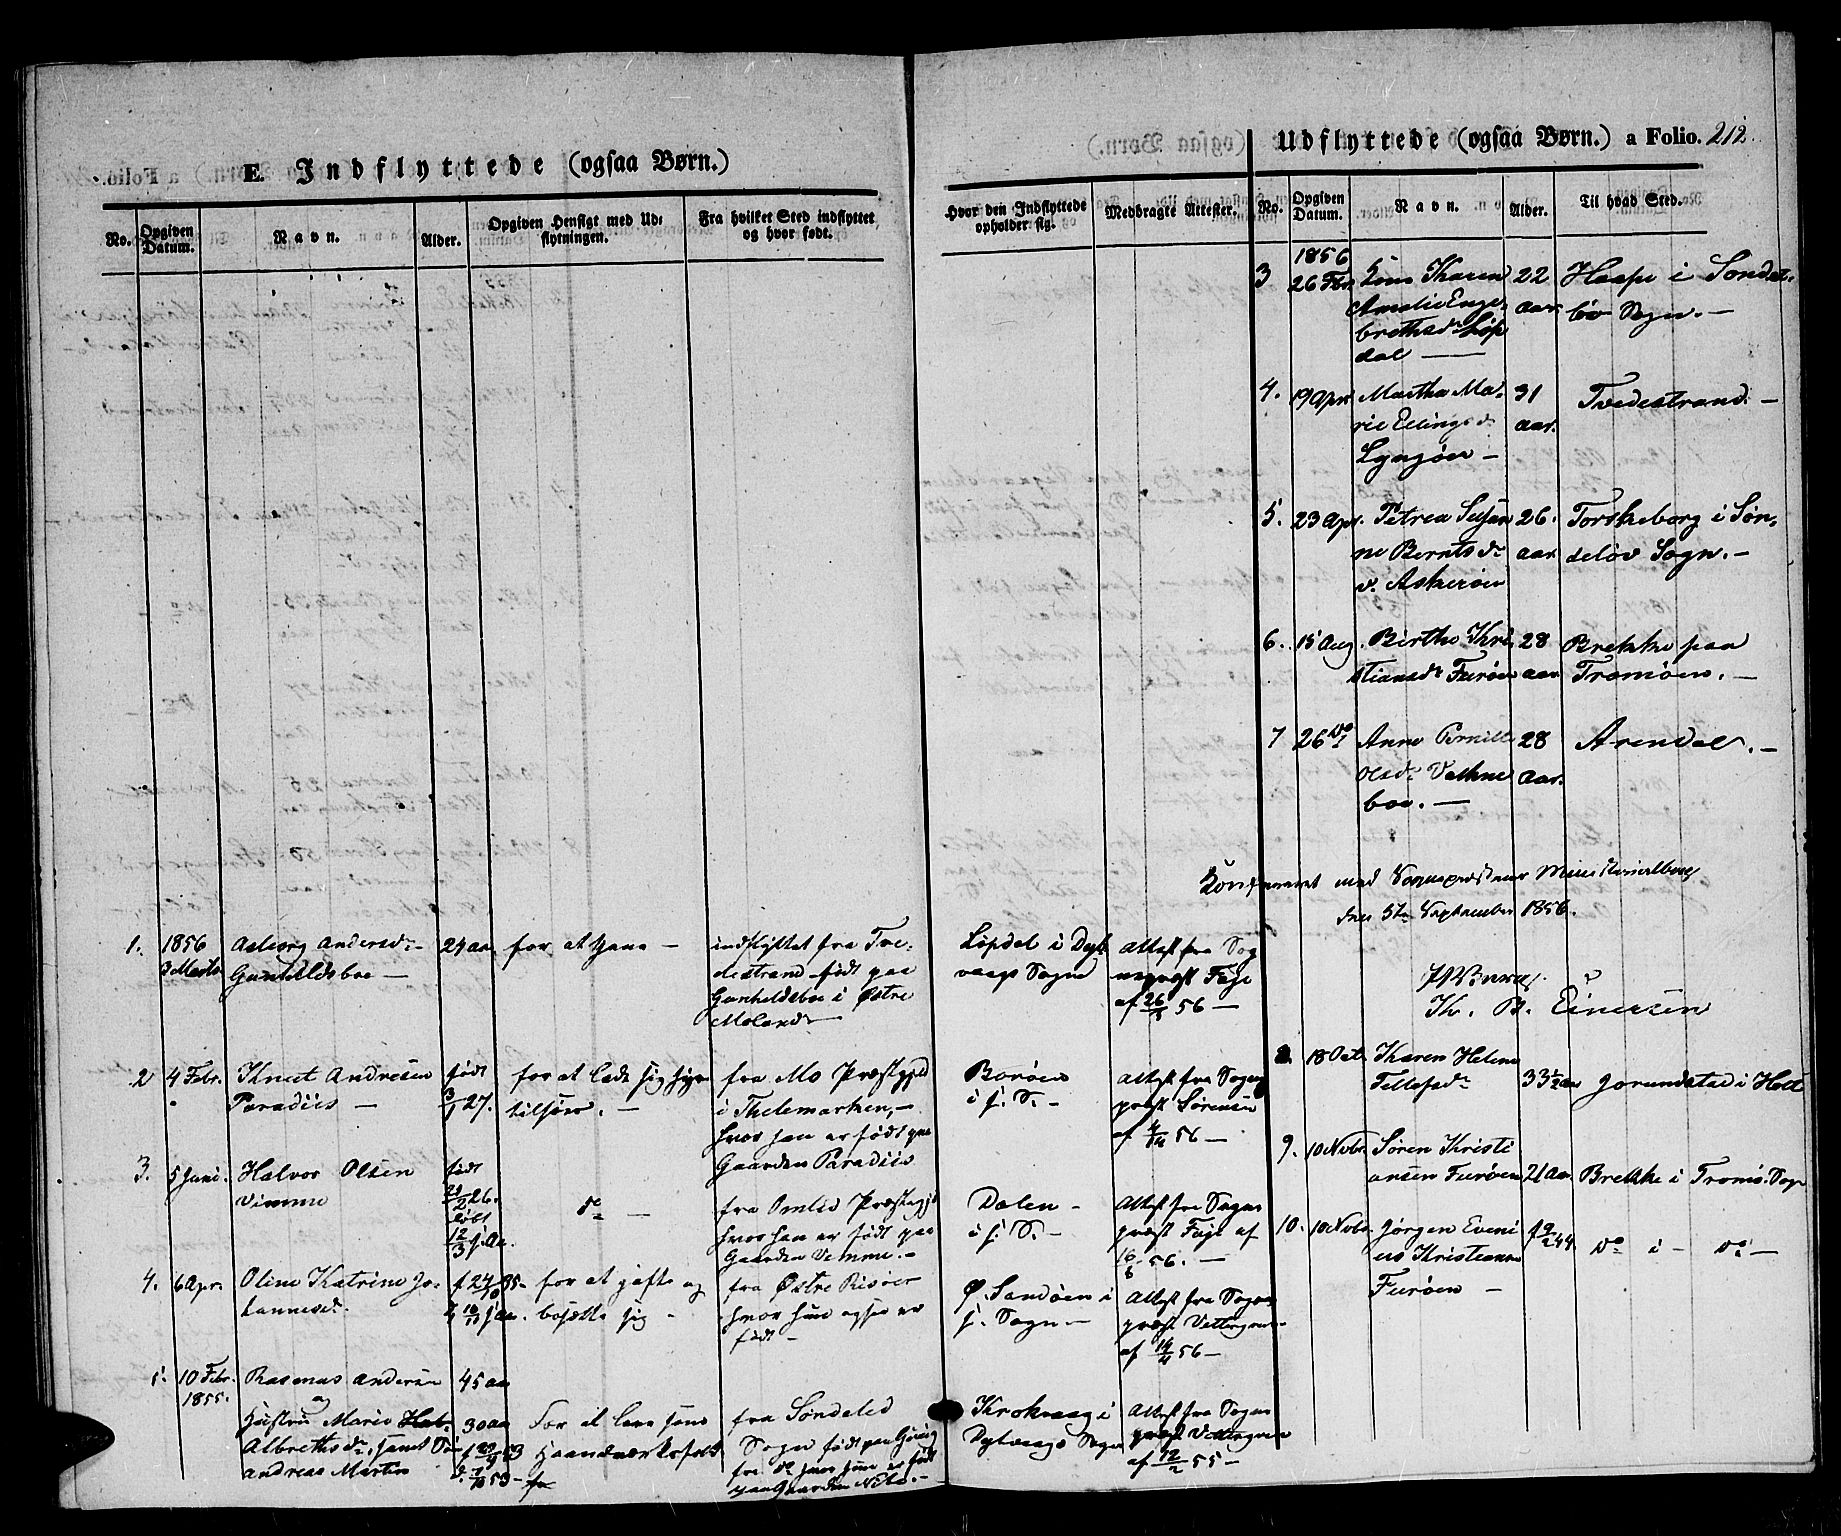 E. Indflyttede (ogsaa Børn.)
No.
Opgiven Datum.
Navn.
Alder.
Opgiven Hensigt med Udflytningen.
Fra hvilket Sted indflyttet og hvor født.
Hvor den Indflyttede opholder sig.
Medbragte Attester.
1.
1856
3 Marts
Aaborg Andersdr
Gunhildsboe —
29 aar
for at tjene —
indflyttet fra Tve-
destrand født paa
Gunheldsboe i Østre
Moland —
Løpdal i Dyb
vaags Sogn
Attest fra Sog
neprest Faye
af 26/3 56 —
2
4 Febr.
Knut Andresen
Paradiis —
født
3/1 27.
for at lade sig hyre
tilsøes. —
fra Mo Præstgjeld
i Thelemarken, —
hvor han er født paa
Gaarden Paradiis
Borøen
i h. S. —
Attest fra Sogne
præst Sørensen
56 —
3.
5 Juni.
Halvor Olsen
Vimme
født
26.
døbt
12/3 s. Aa.
do —
fra Omlid Præstegjd
hvor han er født paa
Gaarden Vemme. —
Dalen —
i h. S. —
Attest fra Sogne
præst Faye af
56. —
4.
6 Apr.
Oline Katrine Jo-
hannesdr.
for at gifte og
bosætte sig —
fra Østre Risøer
hvor hun ogsaa er
født —
Ø. Sandøen i
h. Sogn —
Attest fra Sogne
præst
af 14/4 56 —
5.
10 Febr.
1855.
Rasmus Andersen
og
Hustru Marie
Albrethsdr, samt Søn
Andreas Martin
45 aar
30 aar
53 —
For at lave sand
Haandværksfolk
fra Søndeled
Sogn født paa
fra do hvor hun er født
paa Gaarden
Krokvaag i
Dybvaags Sogn
Attest fra Sogne
præst
af 12/2 55 —
Udflyttede (ogsaa Børn.) a Folio. 212
No.
Opgiven Datum.
Navn.
Alder.
Til hvad Sted.
1856
3
26 Febr.
Karen
Amalie Enge-
brethsdr Løp
dal —
22
aar
Haape i Sønde-
løv Sogn. —
4.
19 Apr.
Martha Ma-
rie Ellingsdr
Lyngøen —
31
aar.
Tvedestrand. —
5.
23 Apr.
Petrea Susan
ne Berntsdr
v. Askerøen
26.
aar.
Torskeborg i Søn-
deløv Sogn. —
6.
15 Aug.
Birthe Kri
stiansdr Furøen
28
aar
Brekke paa
Tromøen. —
7
26 do
Anne Pernille
Olsdr Valkne
boe. —
28
aar.
Arendal. —
Konfereret med Sognepræstens Ministerialbog
den 5te September 1856.
Kr. B. Einersen
8.
18 Oct.
Karen Helene
Tellefsdr
33½ aar
Jorundstad i Holt
9.
10 Novbr.
Søren Kristi
ansen Furøen
21 aar.
Brekke i Tromø. Sogn
10.
10 Novbr.
Jørgen Eveni
us Kristiansen
Furøen —
f 9/2 44.
do i — do —